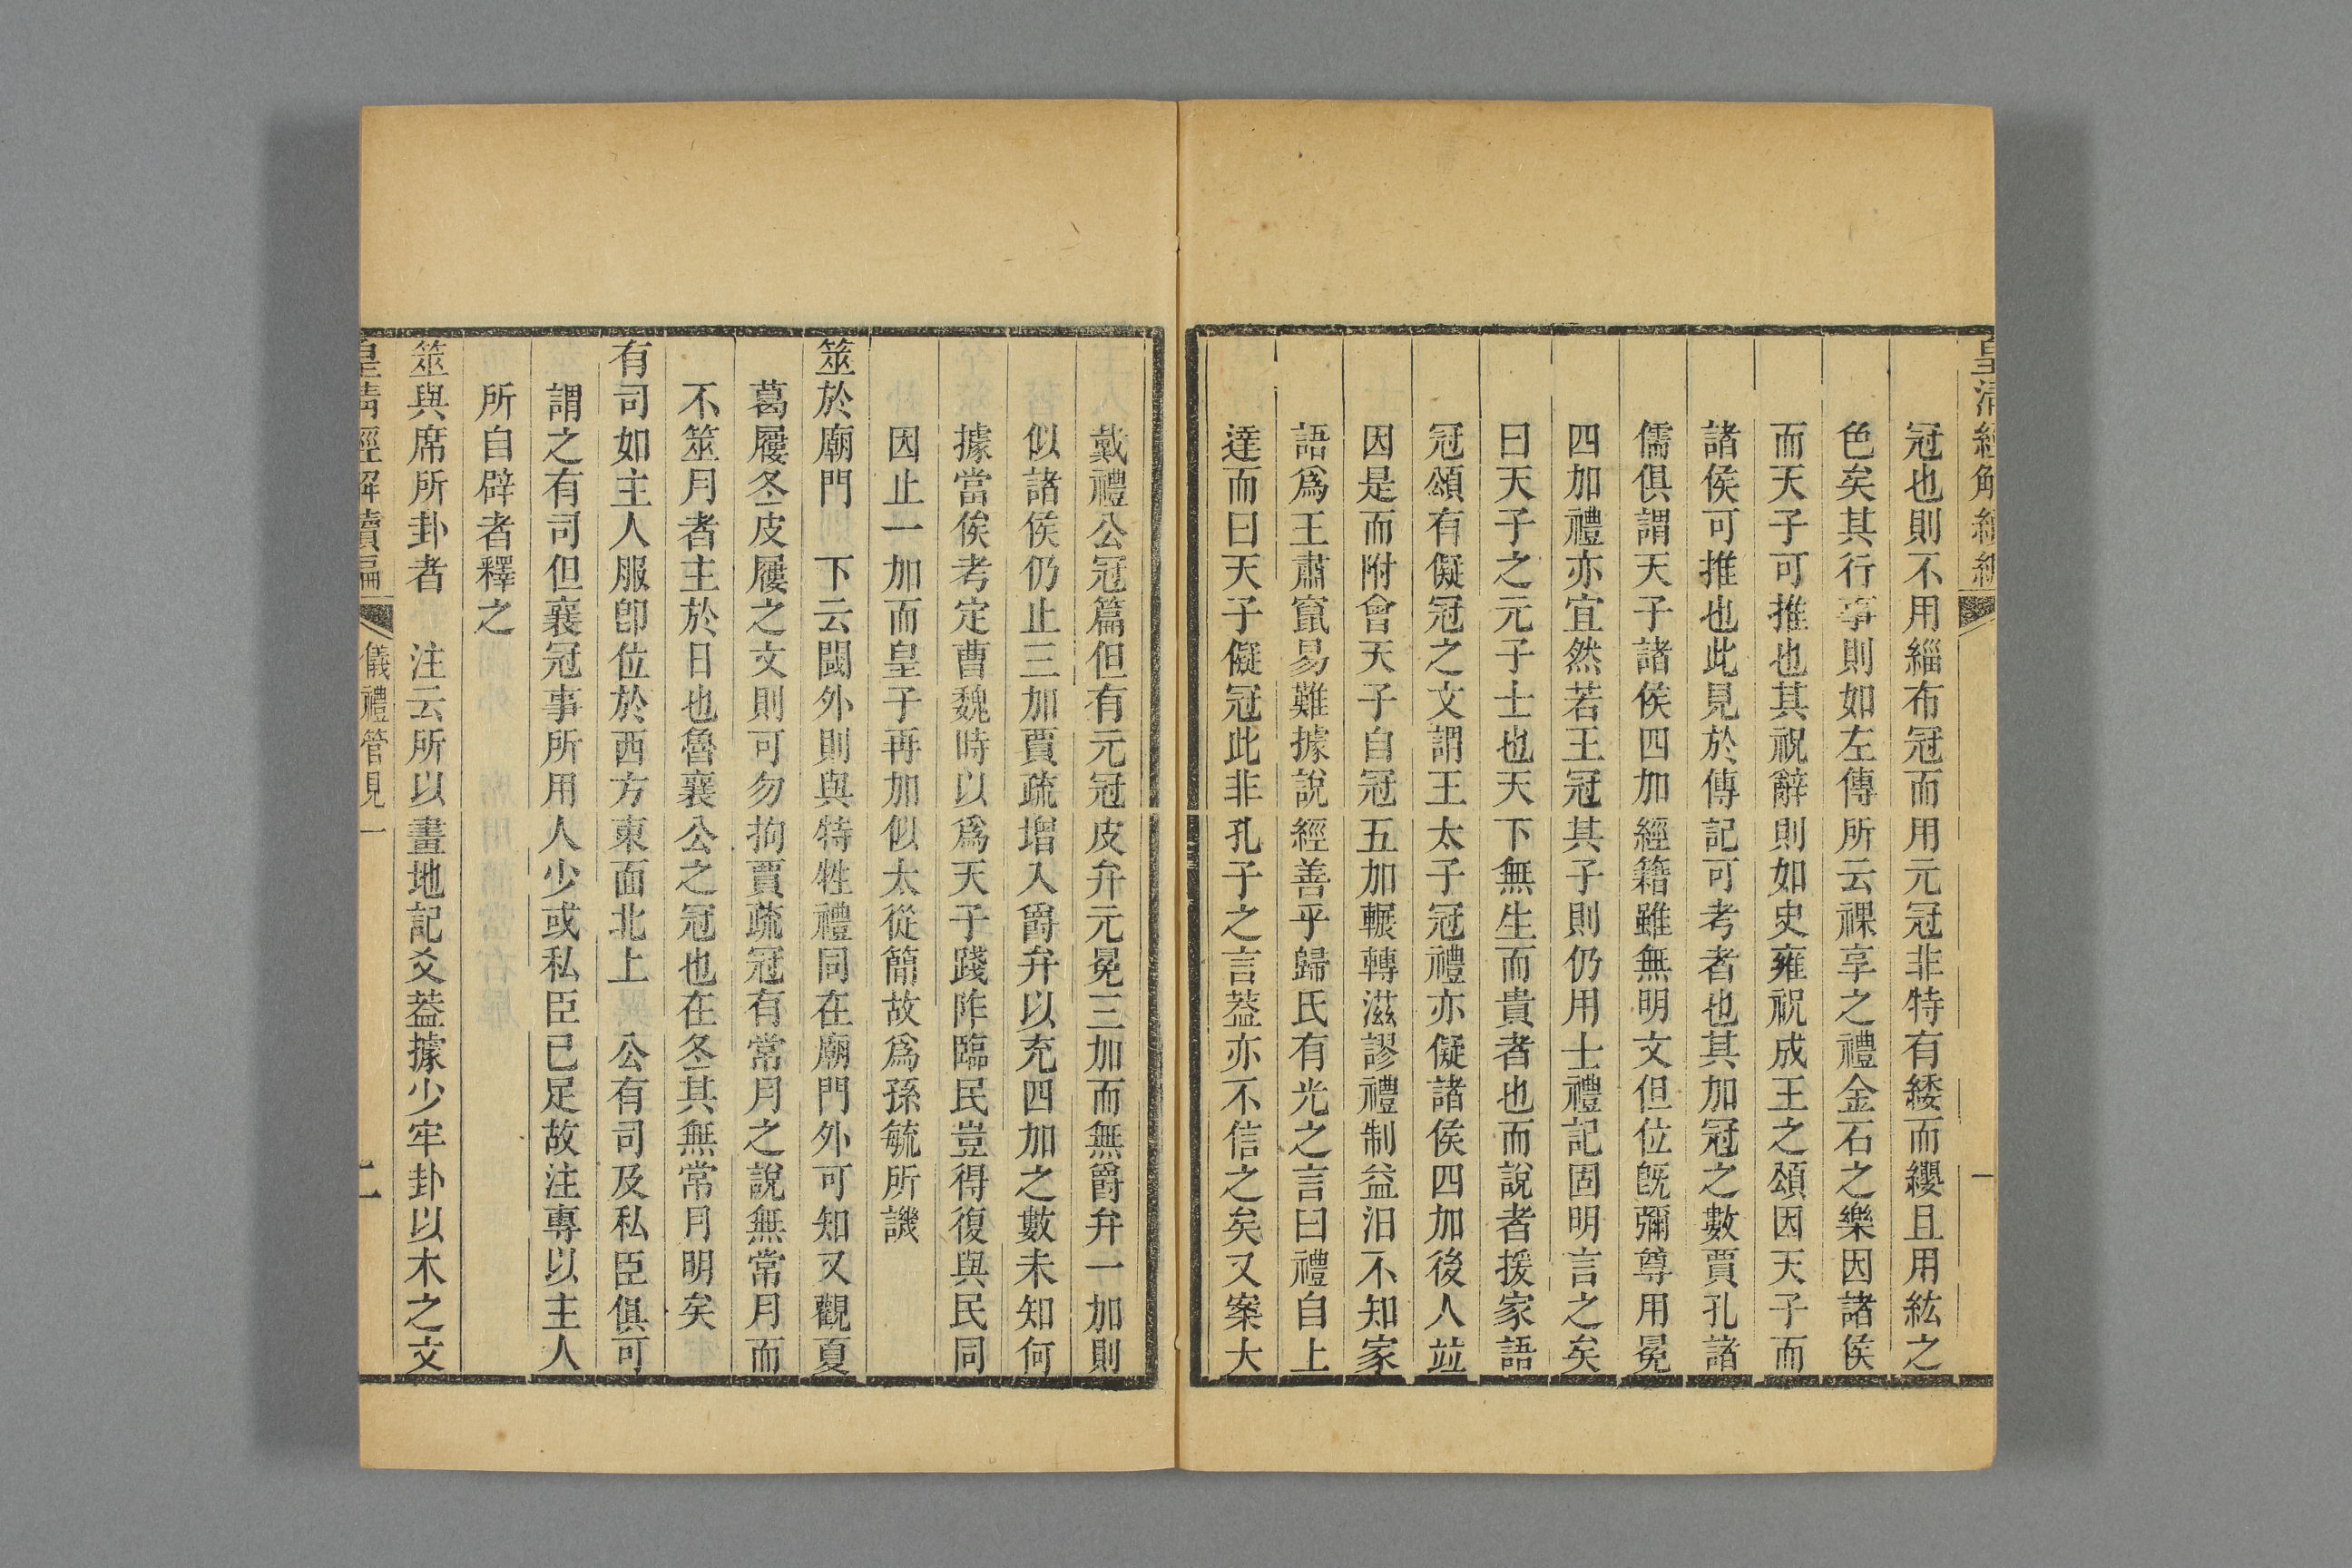 皇清經解續編
一
冠也則不用緇布冠而用元冠非特有緌而纓且用紘之
色矣其行事則如左傳所云祼享之禮金石之樂因諸侯
而天子可推也其祝辭則如史雍祝成王之頌因天子而
諸侯可推也此見於傳記可考者也其加冠之數賈孔諸
儒俱謂天子諸侯四加經籍雖無明文但位旣彌尊用冕
四加禮亦宜然若王冠其子則仍用士禮記固明言之矣
曰天子之元子士也天下無生而貴者也而說者援家語
冠頌有儗冠之文謂王太子冠禮亦儗諸侯四加後人竝
因是而附會天子自冠五加輾轉滋謬禮制益汨不知家
語爲王肅竄易難據說經善乎歸氏有光之言曰禮自上
達而曰天子儗冠此非孔子之言葢亦不信之矣又案大
戴禮公冠篇但有元冠皮弁元冕三加而無爵弁一加則
似諸侯仍止三加賈疏增入爵弁以充四加之數未知何
據當俟考定曹魏時以爲天子踐阼臨民豈得復與民同
因止一加而皇子再加似太從簡故爲孫毓所譏
筮於廟門　下云闑外則與特牲禮同在廟門外可知又觀夏
葛屨冬皮屨之文則可勿拘賈疏冠有常月之說無常月而
不筮月者主於日也魯襄公之冠也在冬其無常月明矣
有司如主人服卽位於西方東面北上　公有司及私臣俱可
謂之有司但襄冠事所用人少或私臣已足故注專以主人
所自辟者釋之
筮與席所卦者　注云所以畫地記爻葢據少牢卦以木之文
皇清經解續編
儀禮管見一
二